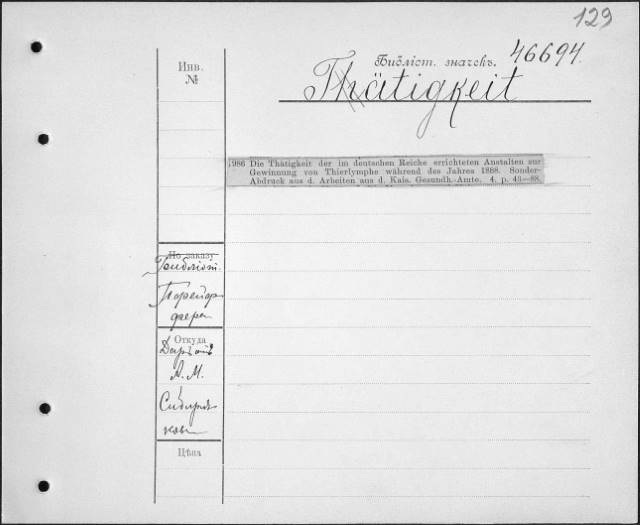 129
Инв.
№
Библіот. значекъ. 46694.
Thätigkeit
1986 Die Thätigkeit der im deutschen Reiche errichteten Anstalten zur
Gewinnung von Thierlymphe während des Jahres 1888. Sonder-
Abdruck aus d. Arbeiten aus d. Kais. Gesundh.-Amte. 4, p. 43—88.
По заказу
Откуда
Даръ отъ
А. М.
Сибиряковa
Цѣна